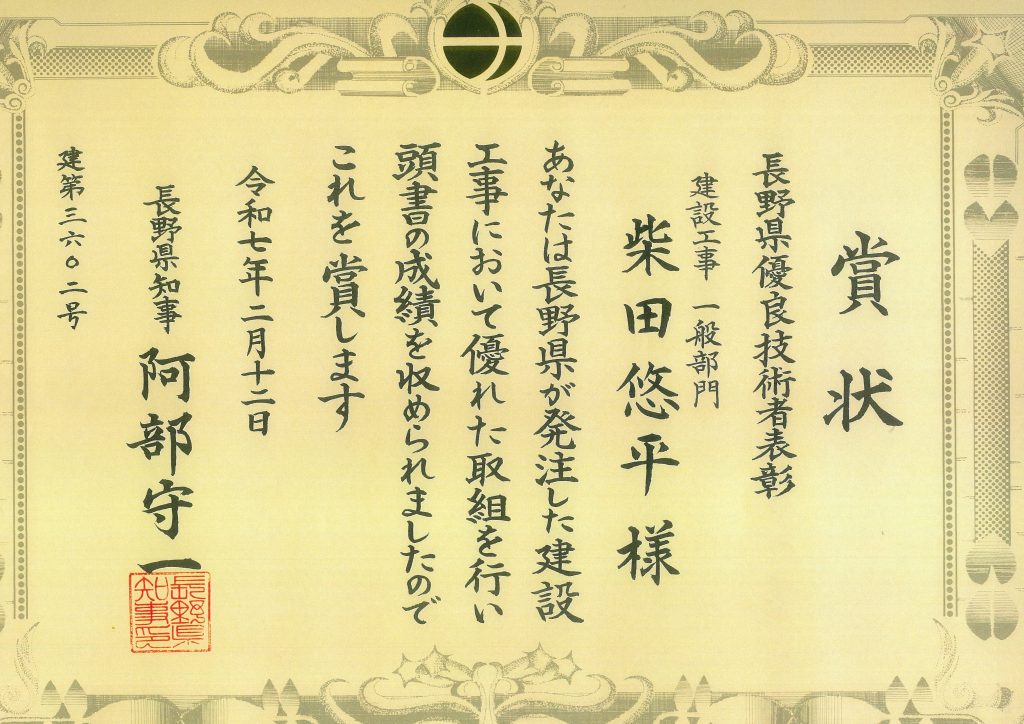 賞状
長野県優良技術者表彰
建設工事 一般部門
柴田悠平様
あなたは長野県が発注した建設
工事において優れた取組を行い
頭書の成績を収められましたので
これを賞します
令和七年二月十二日
長野県知事 阿部守一
長野県知事印
建第三六〇二号